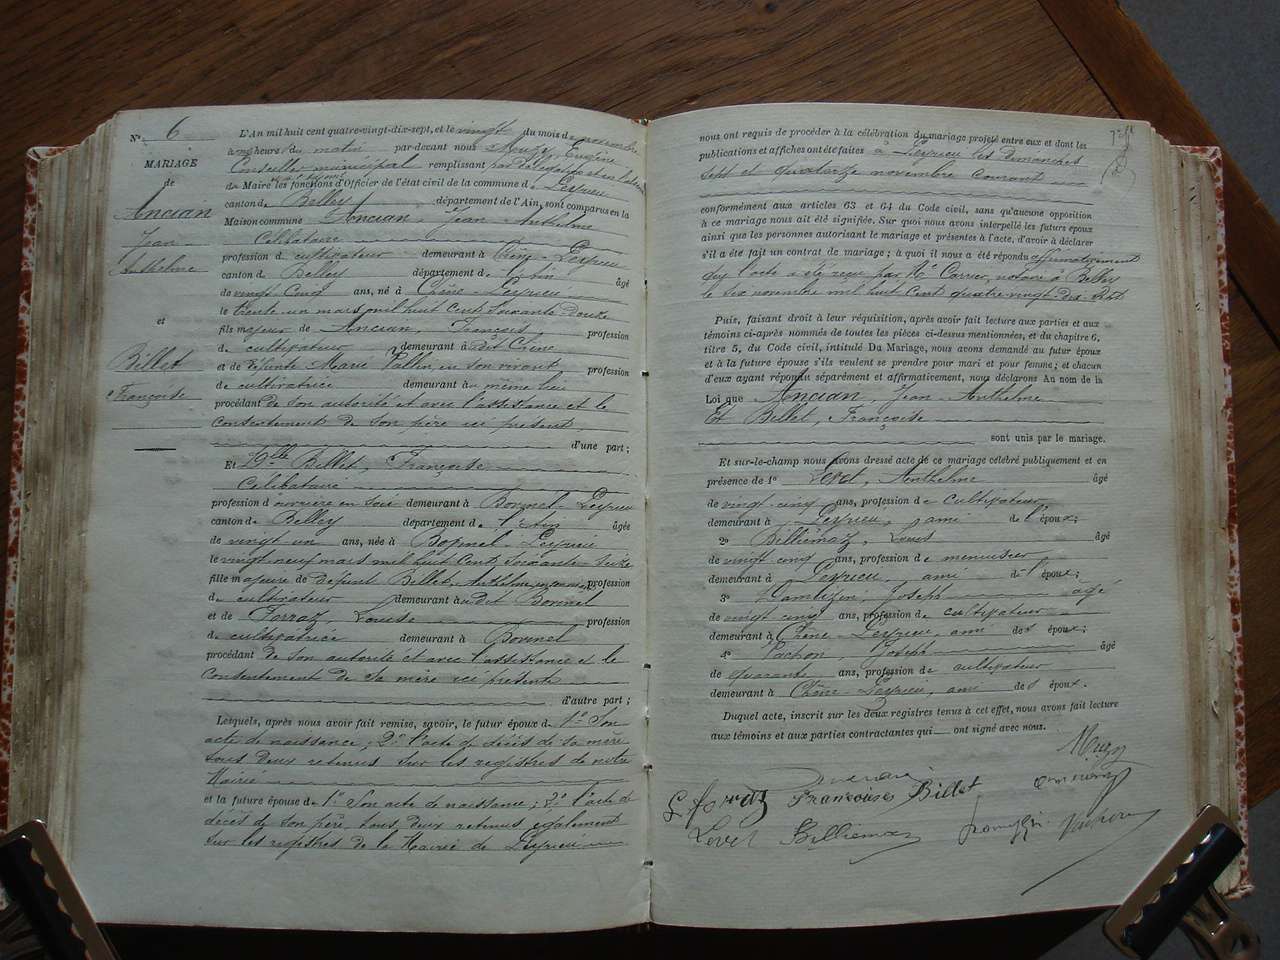 N° 6
MARIAGE
de
Ancian
Jean
Anthelme
et
Billet
Françoise
L'An mil huit cent quatre-vingt-dix-sept, et le vingt du mois de novembre
heures du matin par devant nous Muzy, Eugène
Conseiller municipal remplissant par délégation
de Maire les fonctions d'Officier de l'état civil de la commune de Peyrieu
canton de Belley département de l'Ain, sont comparus en la
Maison commune Ancian, Jean Anthelme
Célibataire
profession de cultivateur demeurant à Chêne-Peyrieu
canton de Belley département de l'Ain âgé
de vingt cinq ans, né à Chêne-Peyrieu
le trente un mars mil huit cent soixante douze
fils majeur de Ancian, François, profession
de cultivateur demeurant à dit Chêne
et de défunte Marie Pallin, en son vivant profession
de cultivatrice demeurant au même lieu
procédant de son autorité et avec l'assistance et le
consentement de son père ici présent
d'une part ;
Et Dlle Billet, Françoise
Célibataire
profession d'ouvrière en soie demeurant à Bonnel-Peyrieu
canton de Belley département de l'Ain âgée
de vingt un ans, née à Bonnel-Peyrieu
le vingt neuf mars mil huit cent soixante seize
fille majeure de défunt Billet, Anthelme, profession
de cultivateur demeurant au dit Bonnel
et de Forraz, Louise profession
de cultivatrice demeurant à Bonnel
procédant de son autorité et avec l'assistance et le
consentement de sa mère ici présente
d'autre part ;
Lesquels, après nous avoir fait remise, savoir, le futur époux de 1° Son
acte de naissance ; 2° l'acte de décès de sa mère
tous deux retenus sur les registres de notre
Mairie
et la future épouse de 1° Son acte de naissance ; 2° l'acte de
décès de son père, tous deux retenus également
sur les registres de la Mairie de Peyrieu
nous ont requis de procéder à la célébration du mariage projeté entre eux et dont les
publications et affiches ont été faites à Peyrieu les dimanches
sept et quatorze novembre courant
conformément aux articles 63 et 64 du Code civil, sans qu'aucune opposition
à ce mariage nous ait été signifiée. Sur quoi nous avons interpellé les futurs époux
ainsi que les personnes autorisant le mariage et présentes à l'acte, d'avoir à déclarer
s'il a été fait un contrat de mariage ; à quoi il nous a été répondu affirmativement
que l'acte a été reçu par Me Carrier, notaire à Belley
le six novembre mil huit cent quatre vingt dix sept
Puis, faisant droit à leur réquisition, après avoir fait lecture aux parties et aux
témoins ci-après nommés de toutes les pièces ci-dessus mentionnées, et du chapitre 6,
titre 5, du Code civil, intitulé Du Mariage, nous avons demandé au futur époux
et à la future épouse s'ils veulent se prendre pour mari et pour femme ; et chacun
d'eux ayant répondu séparément et affirmativement, nous déclarons Au nom de la
Loi que Ancian, Jean-Anthelme
Et Billet, Françoise
sont unis par le mariage.
Et sur-le-champ nous avons dressé acte de ce mariage célébré publiquement et en
présence de 1° Levet, Anthelme âgé
de vingt cinq ans, profession de cultivateur
demeurant à Peyrieu, ami de l'époux ;
2° Billiemaz, Louis âgé
de vingt cinq ans, profession de menuisier
demeurant à Peyrieu, ami de l'époux ;
3° Joseph âgé
de vingt cinq ans, profession de cultivateur
demeurant à Chêne-Peyrieu, ami des époux ;
4° Pachon, Joseph âgé
de quarante ans, profession de cultivateur
demeurant à Chêne-Peyrieu, ami des époux.
Duquel acte, inscrit sur les deux registres tenus à cet effet, nous avons fait lecture
aux témoins et aux parties contractantes qui ont signé avec nous.
Muzy
L. forraz Francoises Billet
Levet Billiemaz Pachon